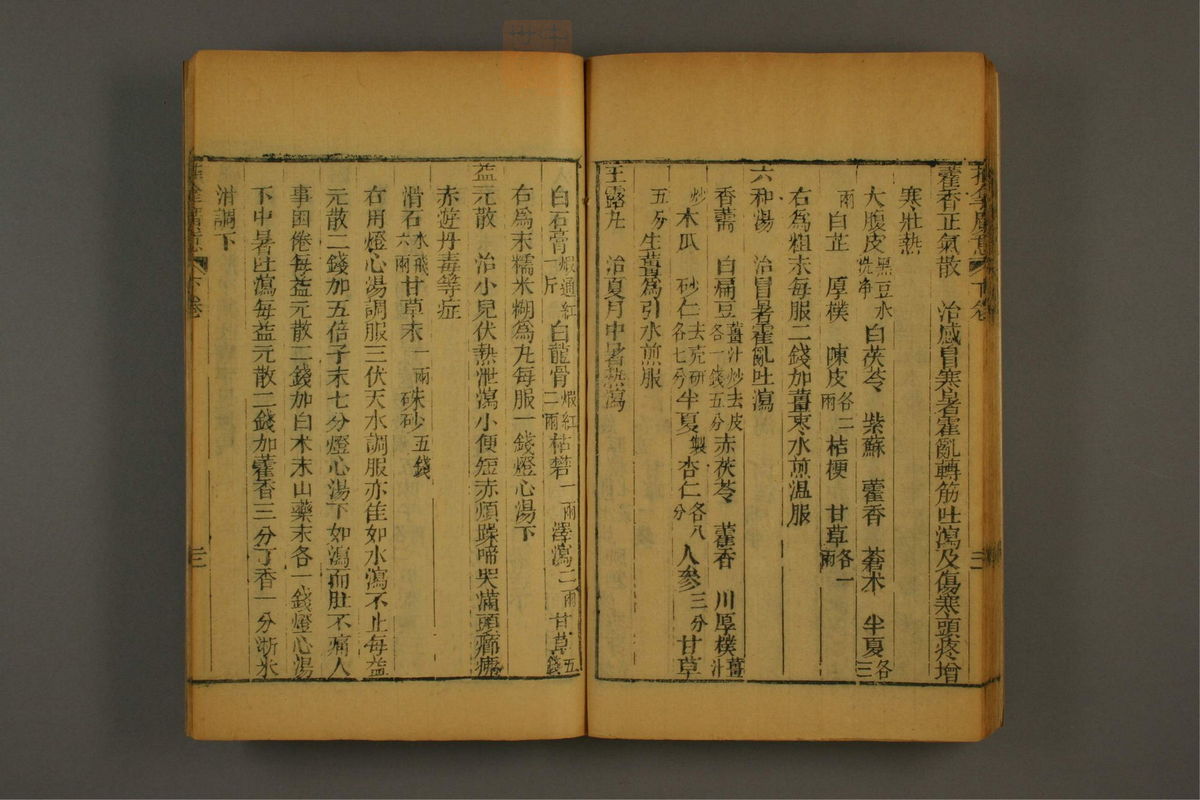 藿香正氣散　治感冒寒暑霍亂轉筋吐瀉及傷寒頭疼增
寒壯熱
大腹皮黑豆水洗净　白茯苓　紫蘇　藿香　蒼朮　半夏各三
兩　白芷　厚樸　陳皮各二兩　桔梗　甘草各一兩
右為粗末每服二錢加薑棗水煎温服
六和湯　治冒暑霍亂吐瀉
香薷　白扁豆薑汁炒去皮各一錢五分　赤茯苓　藿香　川厚樸薑汁
炒　木瓜　砂仁去殻研各七分　半夏製　杏仁各八分　人參三分　甘草
五分　生薑為引水煎服
玉露丸　治夏月中暑熱瀉
白石膏煅通紅一斤　白龍骨煅紅二兩　枯礬一兩　澤瀉二兩　甘草五錢
右為末糯米糊為丸每服一錢燈心湯下
益元散　治小兒伏熱泄瀉小便短赤煩躁啼哭滿頭癤瘡
赤遊丹毒等症
滑石水飛六兩　甘草末一兩　硃砂五錢
右用燈心湯調服三伏天水調服亦佳如水瀉不止每益
元散二錢加五倍子末七分燈心湯下如瀉而肚不痛人
事困倦每益元散二錢加白朮末山藥末各一錢燈心湯
下中暑吐瀉每益元散二錢加藿香三分丁香一分淅水
滑調下
下卷
三